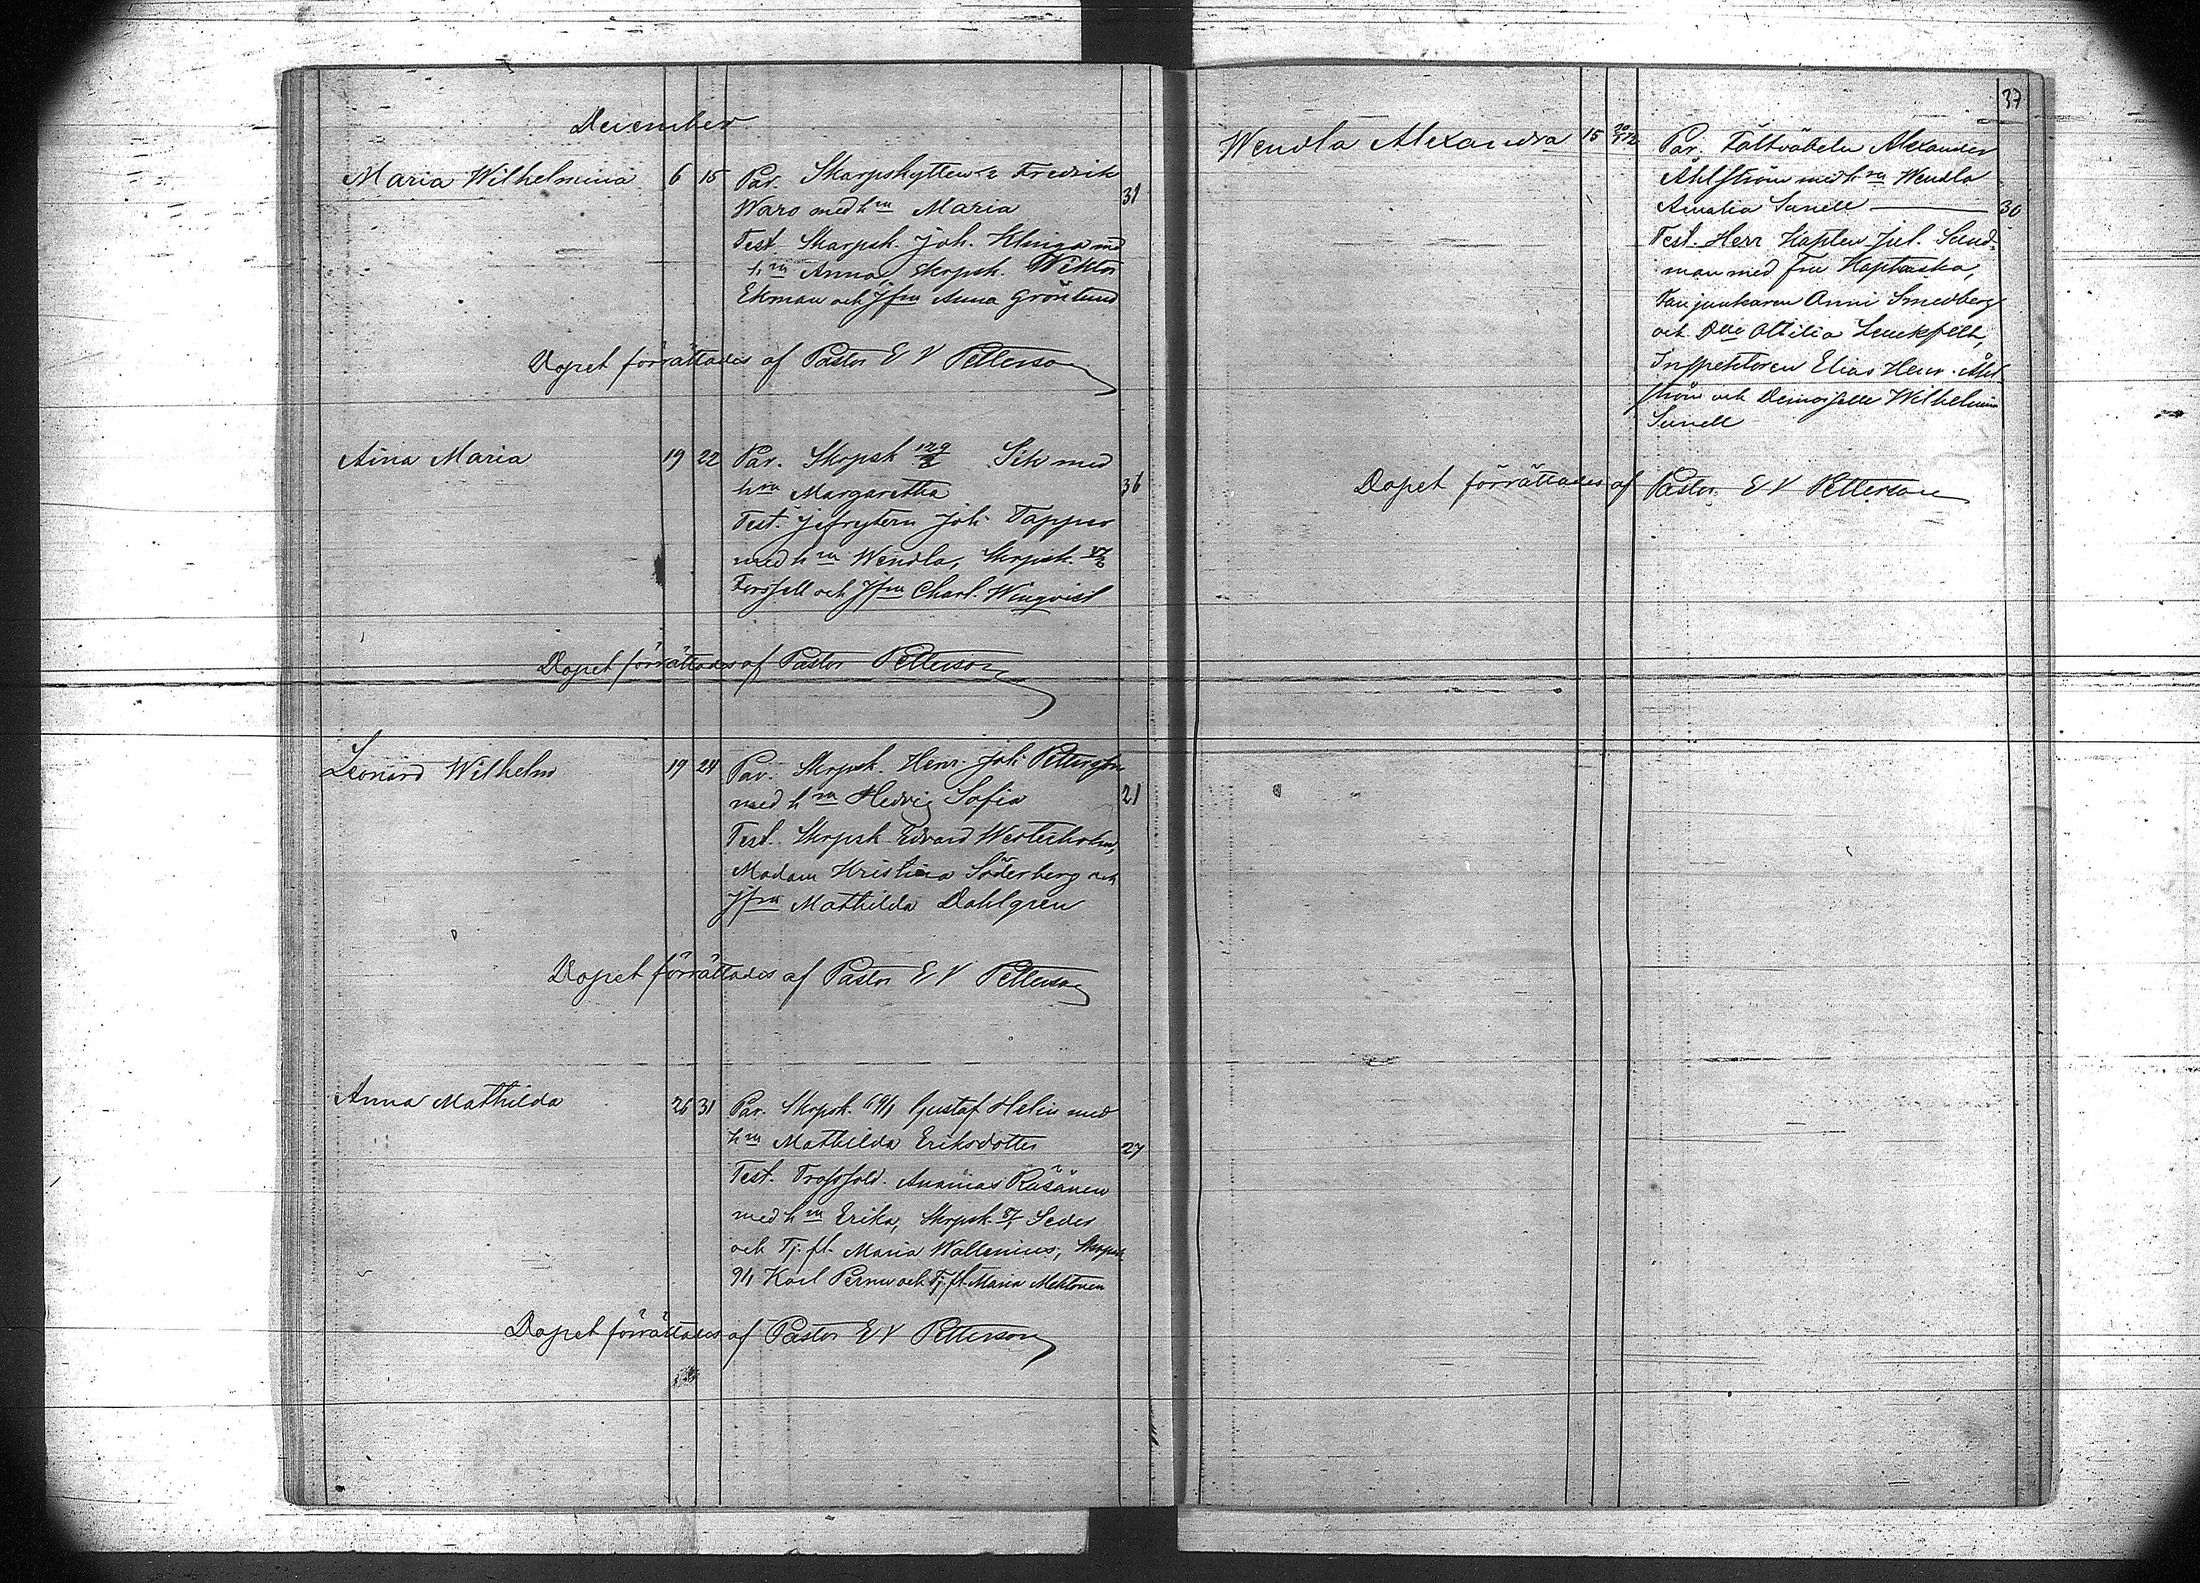 December
Maria Wilhelmina 6 15 Par. Skarpskytten Fredrik
Waro med h:u Maria 31
Test. Skarpsk. Joh. Klinga med
h:u Anna, Skrpsk. Wiktor
Ekman och Jfru Anna Grönlund
Dopet förrättades af Pastor E V Petterson
Aina Maria 19 22 Par. Skrpsk 129 Sik med
h:u Margaretha 36
Test. Jefreytern Joh. Tapper
med h:u Wendla, Skrpsk.
Forssell och Jfru Charl. Winqvist
Dopet förrättades af Pastor Petterson
Leonard Wilhelm 19 24 Par. Skrpsk. Henr. Joh. Pettersson
med h:u Hedvig Sofia 21
Test. Skrpsk Edvard Westerholm,
Madam Kristina Söderberg och
Jfru Mathilda Dahlgren
Dopet förrättades af Pastor E V Petterson
Anna Mathilda 26 31 Par. Skrpsk. Gustaf Helin med
h:u Mathilda Eriksdotter 27
Test. Trosssold. Ananias Räsänen
med h:u Erika, Skrpsk. Seder
och Tj. fl. Maria Wallenius, Skrpsk
Karl Pernu och Tj. fl. Maria Mehtonen
Dopet förrättades af Pastor E V Petterson
37
Wendla Alexandra 15 Par. Fältväbeln Alexander
Åhlström med h:u Wendla
Amalia Sunell 30
Test. Herr Kapten Jul. Sand-
man med Fru Kaptenska,
Fanjunkaren Smedberg
och D:lle Ottilia
Inspektoren Elias Henr. Åhl-
ström och Demoiselle Wilhelmin
Sunell
Dopet förrättades af Pastor E V Petterson